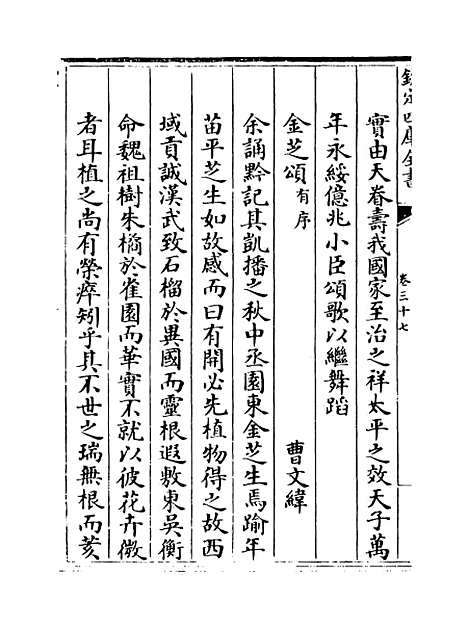 欽定四庫全書
卷三十七
實由天眷壽我國家至治之祥太平之效天子萬
年永綏億兆小臣頌歌以繼舞蹈
金芝頌有序
曹文緯
余誦黔記其凱播之秋中丞園東金芝生焉踰年
苗平芝生如故感而曰有開必先植物得之故西
域貢誠漢武致石榴於異國而靈根遐敷東吳衡
命魏祖樹朱橘於雀園而華實不就以彼花卉微
者耳植之尚有榮瘁矧乎其不世之瑞無根而荄